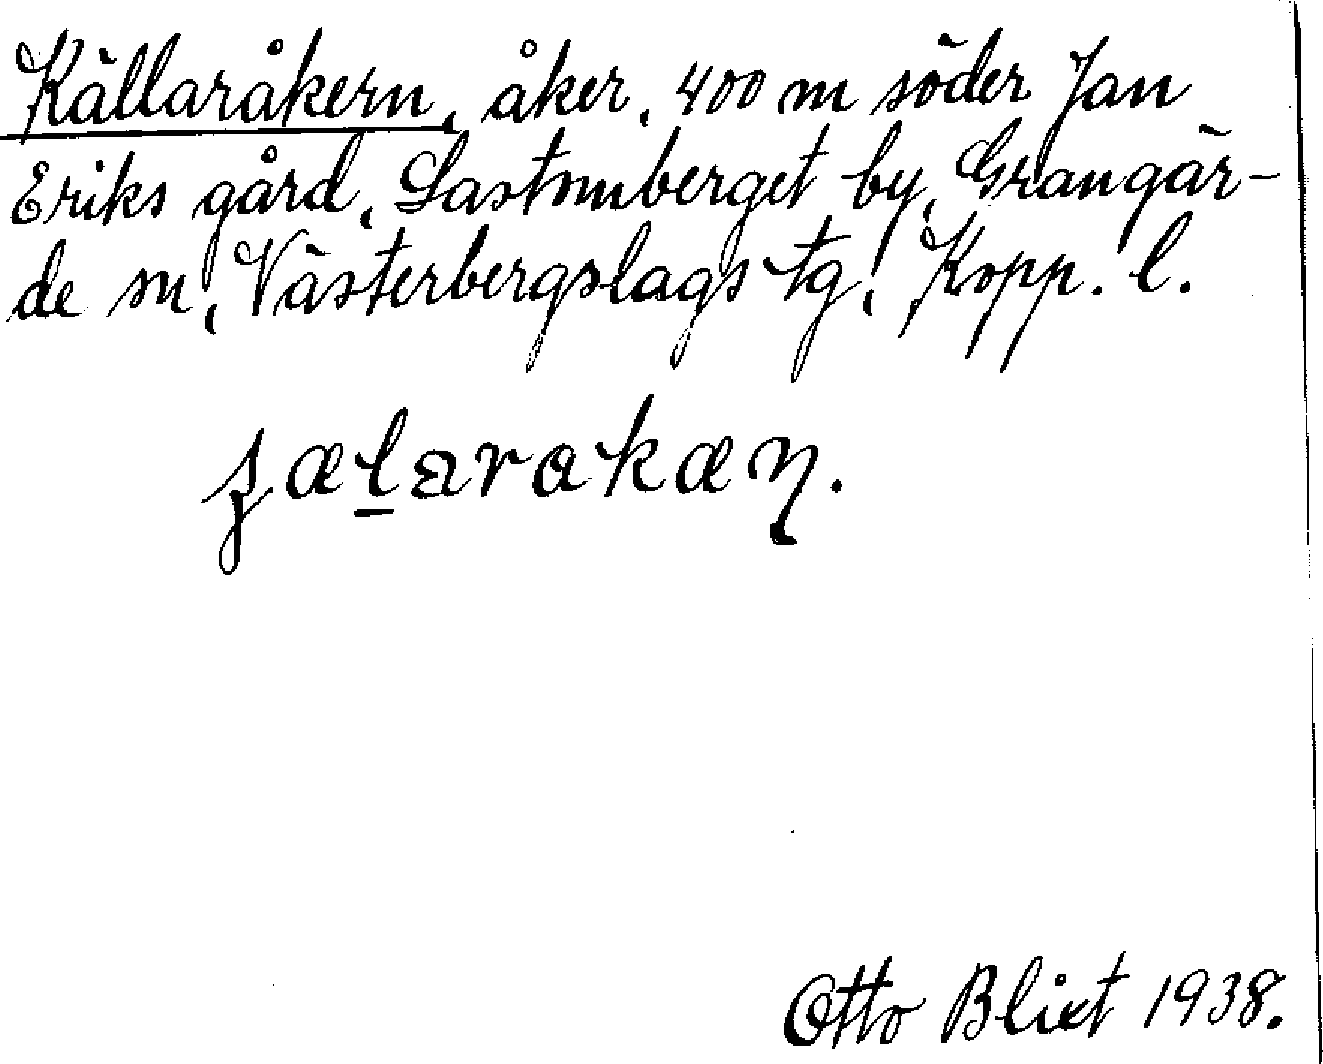 Källaråkern, åker, 400 m söder Jan
Eriks gård, Lastmberget by, Grangär-
de sn, Västerbergslags tg, Kopp. l.
Otto Blixt 1938.